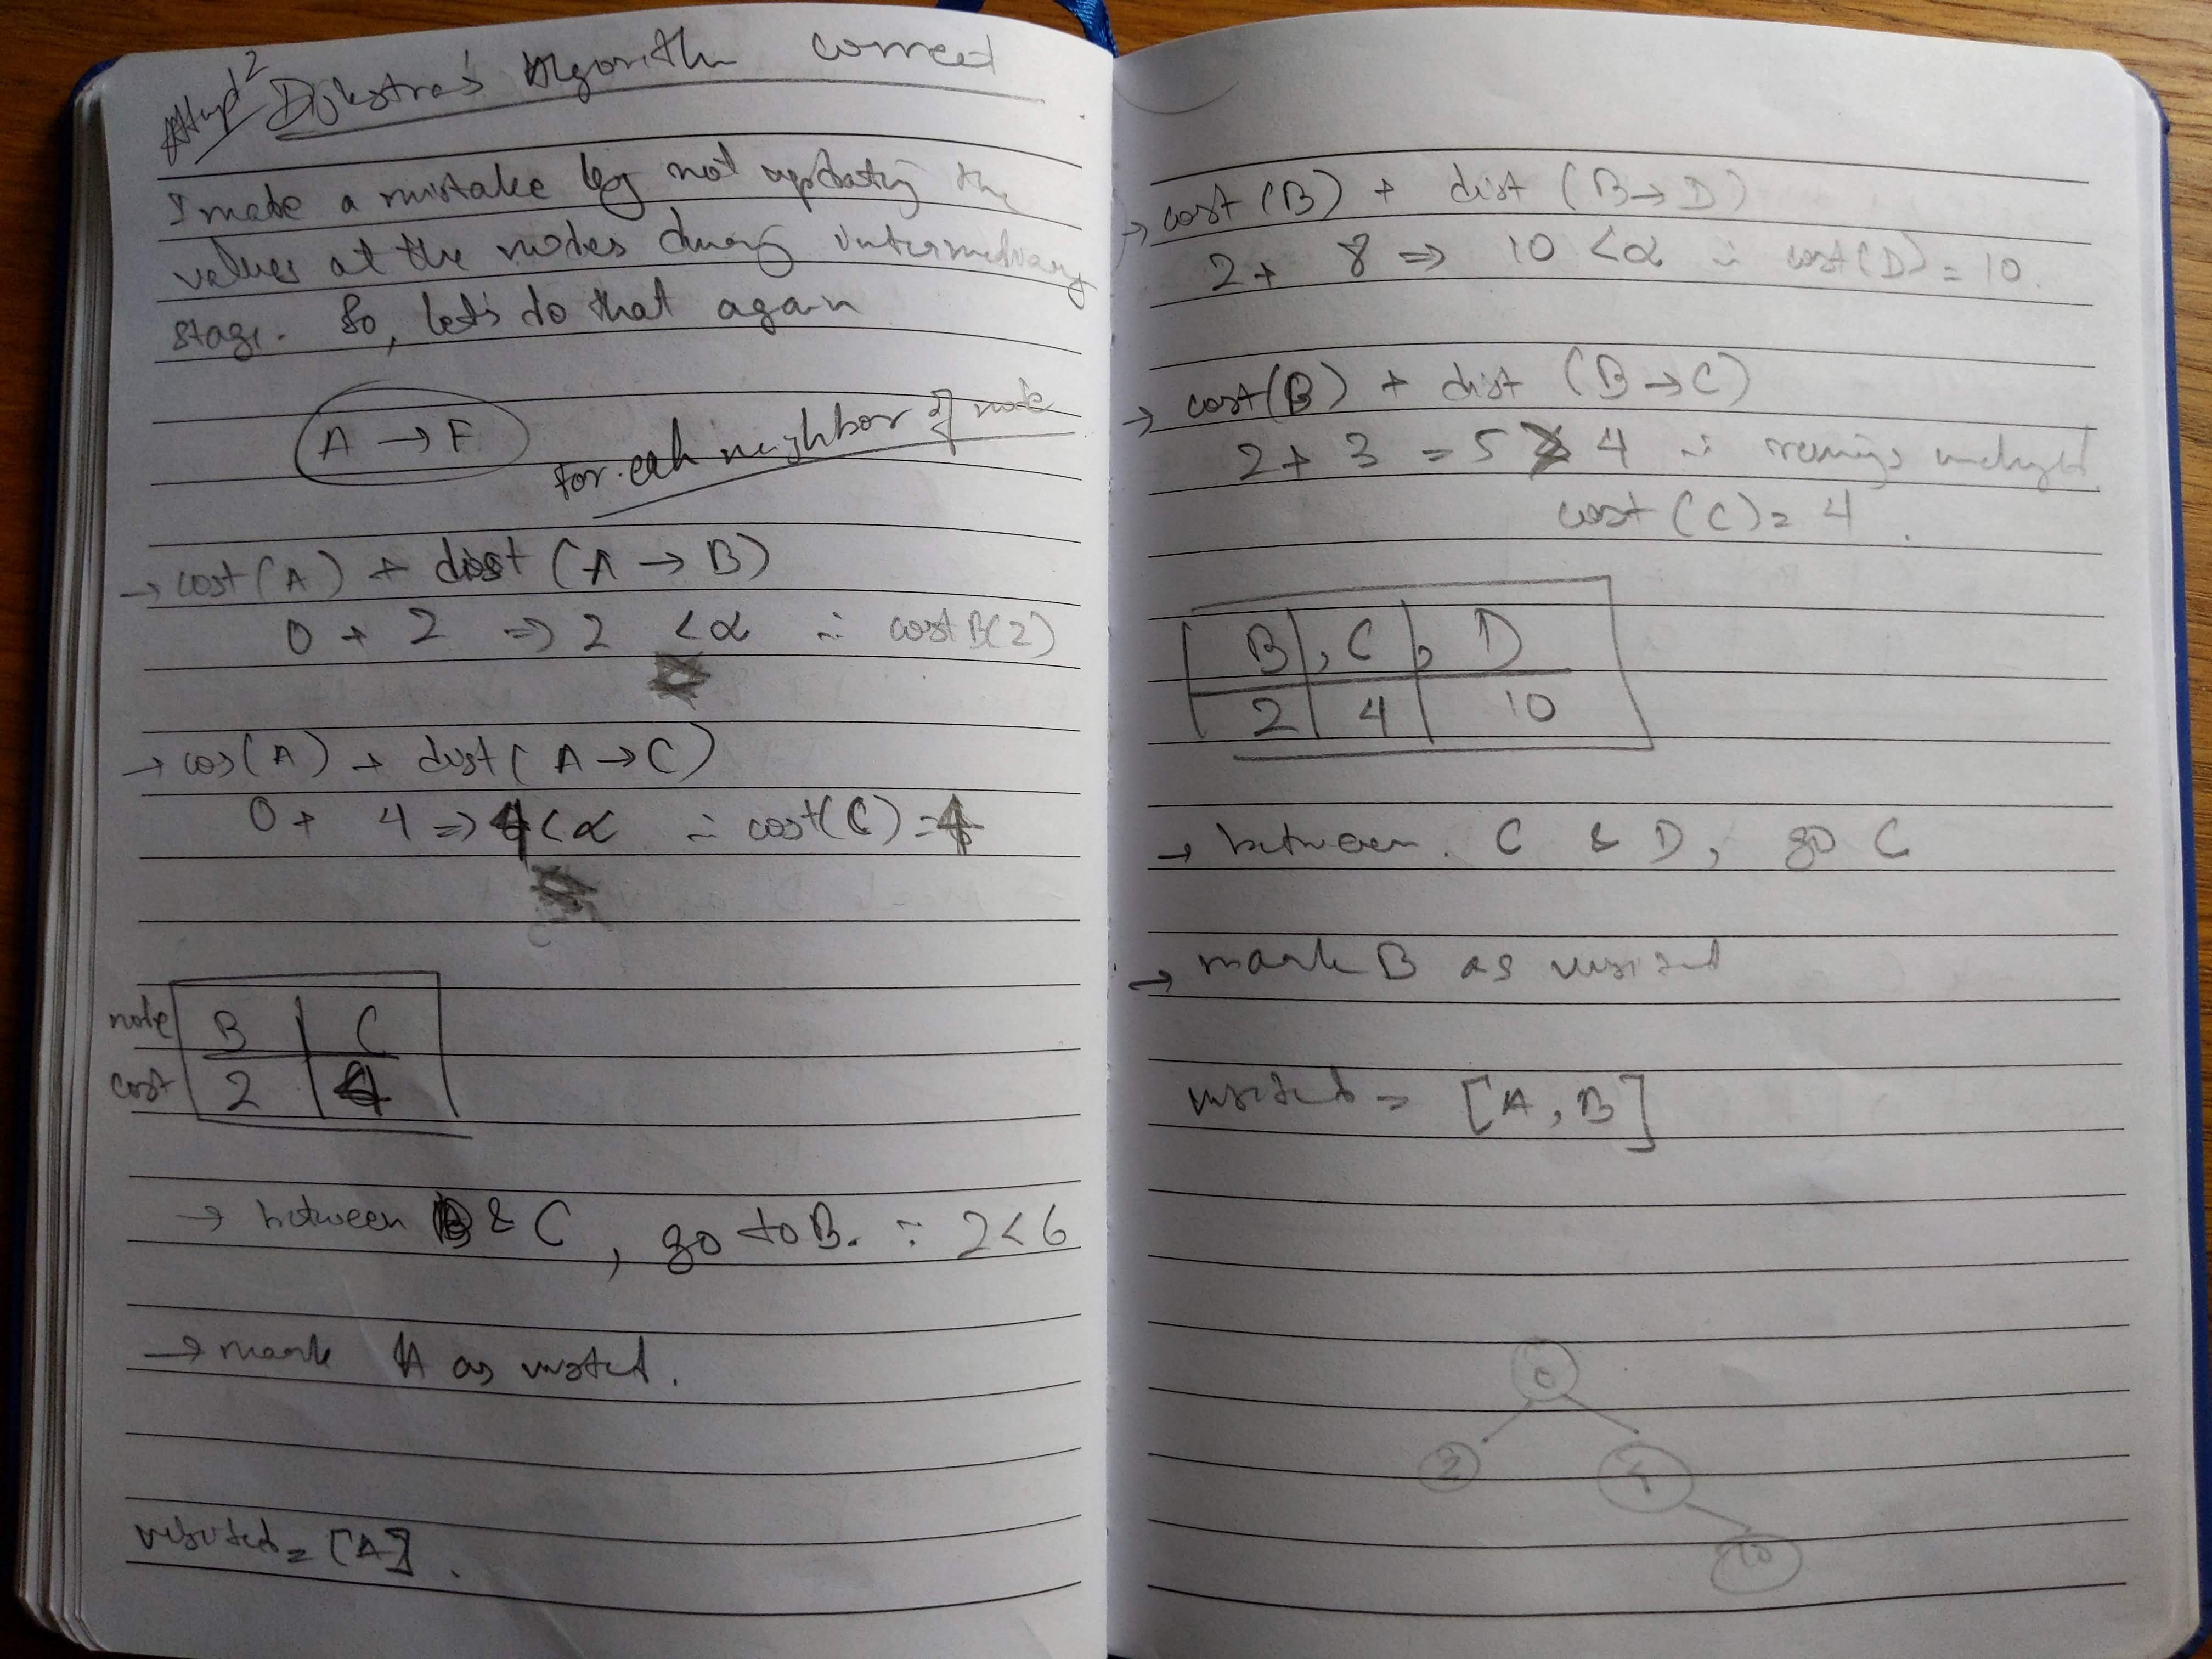 Attempt 2 Dijkstra's Algorithm correct
I made a mistake by not updating the
values at the nodes during intermediary
stage. So, let's do that again
A → F
for each neighbor of node
→ cost (A) + dist (A → B)
0 + 2 ⇒ 2 < α ∴ cost B(2)
→ cos(A) + dist ( A → C)
0 + 4 ⇒ 4 < α ∴ cost(C) = 4
node B | C
cost 2 | 4
→ between B & C, go to B. ∵ 2 < 6
→ mark A as visited.
visited = [A].
→ cost (B) + dist (B → D)
2 + 8 ⇒ 10 < α ∴ cost(D) = 10.
→ cost(B) + dist (B → C)
2 + 3 = 5 4 ∴ remains unchanged
cost (C) = 4.
B | , C | , D
2 | 4 | 10
→ between. C & D, go C
→ mark B as visited
visited = [A, B]
0
2 4
10